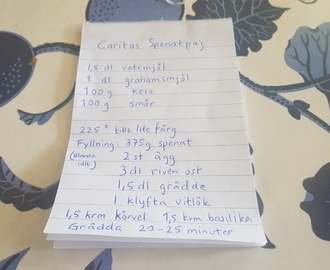 Caritas Spenatpaj
1,5 dl vetemjöl
1 dl grahamsmjöl
100 g keso
100 g smör
225° tills lite färg
Fyllning: 375g spenat
(blanda allt) 2 st ägg
3 dl riven ost
1,5 dl grädde
1 klyfta vitlök
1,5 krm körvel 1,5 krm basilika
Grädda 20-25 minuter